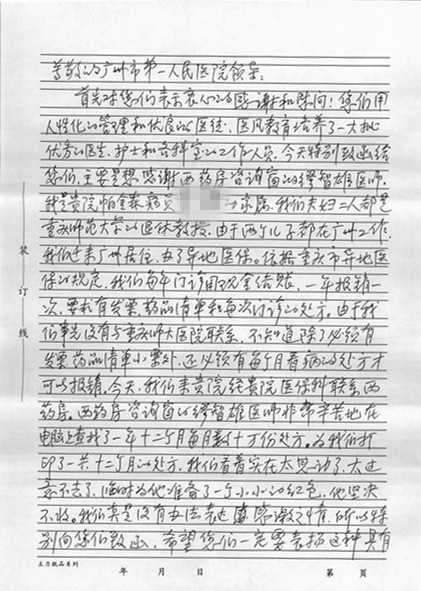 尊敬的广州市第一人民医院领导:
首先对您们表示衷心的感谢和慰问!您们用
人性化的管理和优良的医德、医风教育培养了一大批
优秀的医生、护士和各科室的工作人员。今天特别致函给
您们,主要是想感谢西药房咨询窗的缪智雄医师。
我是贵院帕金森病员 的家属。我们夫妇二人都是
重庆师范大学的退休教授。由于两个儿子都在广州工作,
我们近来广州居住,办了异地医保。依据重庆市异地医
保的规定,我们每年门诊用现金结账,一年报销一
次,要求有发票、药品清单和每次门诊的处方。由于我
们事先没有与重庆师大医院联系,不知道除了必须有
发票药品清单小票外,还必须有每个月看病的处方才
可以报销。今天,我们来贵院经贵院医保科联系西
药房。西药房咨询窗的缪智雄医师非常辛苦地在
电脑上查找了一年十二个月每月数十万份处方。为我们打
印了一共十二个月的处方,我们看着实在太感动了,太过
意不去了,临时为他准备了一个小小的红包,他坚决
不收。我们真是没有办法表达 感激之情,所以特
别向您们致函,希望您们一定要表扬这种具有
装 订 线
主力纸品系列 年 月 日 第 页